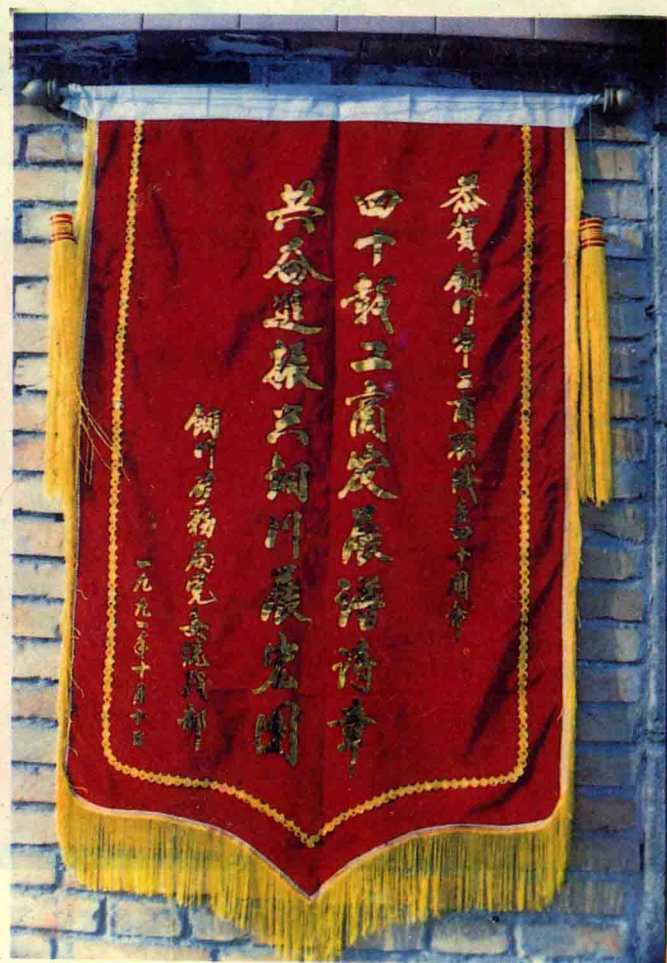 恭贺铜川市工商联成立四十周年
四十载工商发展谱诗章
共奋进振兴铜川展宏图
铜川矿务局党委统战部
一九九一年十月十日